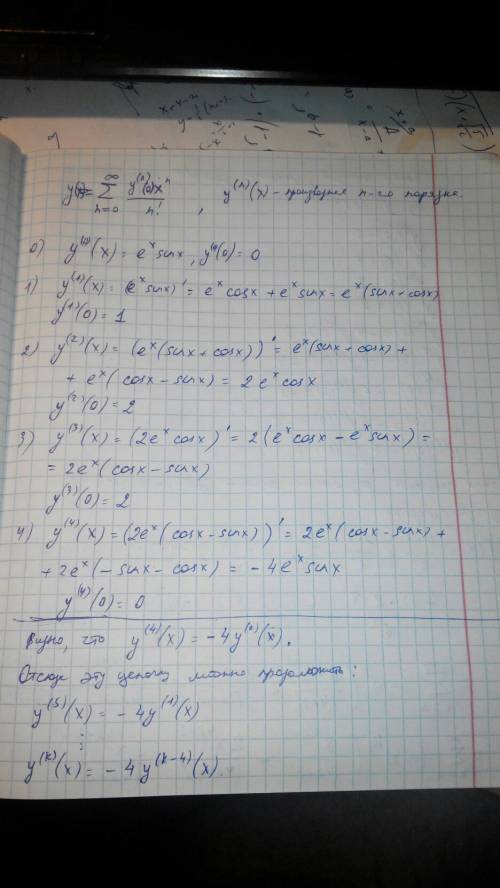 y(x)= ∑_{n=0}^{∞} y^{(n)}(0)x^n / n! , y^{(n)}(x) - производная n-го порядка
0) y^{(0)}(x) = e^x sinx, y^{(0)}(0) = 0
1) y^{(1)}(x) = (e^x sinx)' = e^x cosx + e^x sinx = e^x (sinx + cosx)
y^{(1)}(0) = 1
2) y^{(2)}(x) = (e^x (sinx + cosx))' = e^x (sinx + cosx) +
+ e^x (cosx - sinx) = 2e^x cosx
y^{(2)}(0) = 2
3) y^{(3)}(x) = (2e^x cosx)' = 2(e^x cosx - e^x sinx) =
= 2e^x (cosx - sinx)
y^{(3)}(0) = 2
4) y^{(4)}(x) = (2e^x (cosx - sinx))' = 2e^x (cosx - sinx) +
+ 2e^x (- sinx - cosx) = - 4e^x sinx
y^{(4)}(0) = 0
Видно, что y^{(4)}(x) = - 4y^{(0)}(x).
Отсюда эту цепочку можно продолжить:
y^{(5)}(x) = - 4y^{(1)}(x)
⋮
y^{(k)}(x) = - 4y^{(k-4)}(x)